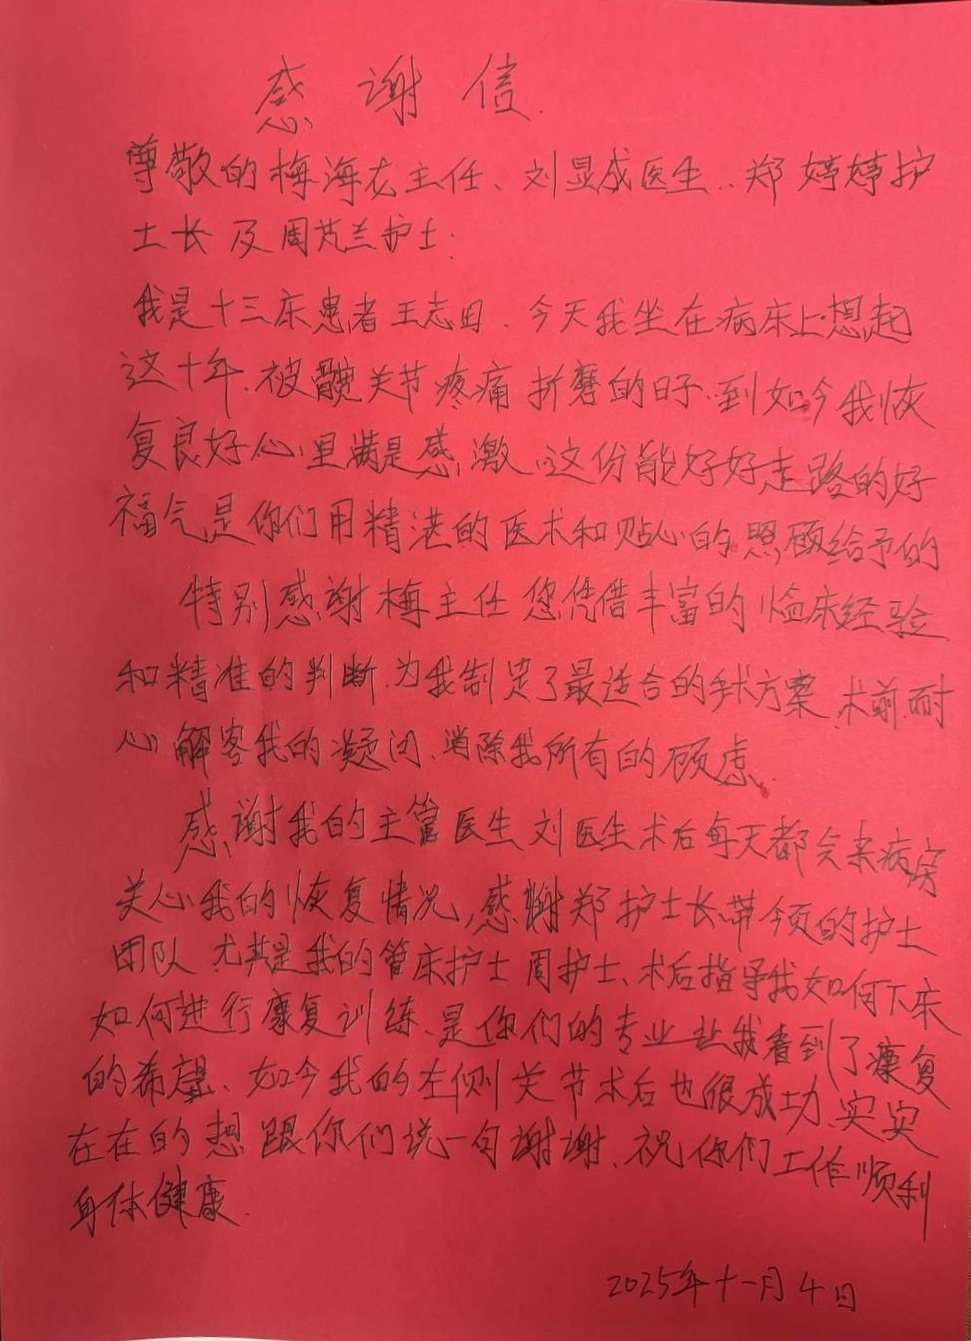 感谢信
尊敬的梅海龙主任、刘显成医生、郑婷婷护
士长及周芃兰护士:
我是十三床患者王志田、今天我坐在病床上想起
这十年、被髋关节疼痛折磨的日子、到如今我恢
复良好心里满是感激、这份能好好走路的好
福气是你们用精湛的医术和贴心的照顾给予的
特别感谢梅主任您凭借丰富的临床经验
和精准的判断、为我制定了最适合的手术方案、术前耐
心解答我的凝问、消除我所有的顾虑、
感谢我的主管医生刘医生术后每天都会来病房
关心我的恢复情况,感谢郑护士长带领的护士
团队、尤其是我的管床护士周护士、术后指导我如何下床
如何进行康复训练、是你们的专业让我看到了康复
的希望、如今我的左侧关节术后也很成功、实实
在在的想跟你们说一句谢谢、祝你们工作顺利
身体健康.
2025年十一月4日